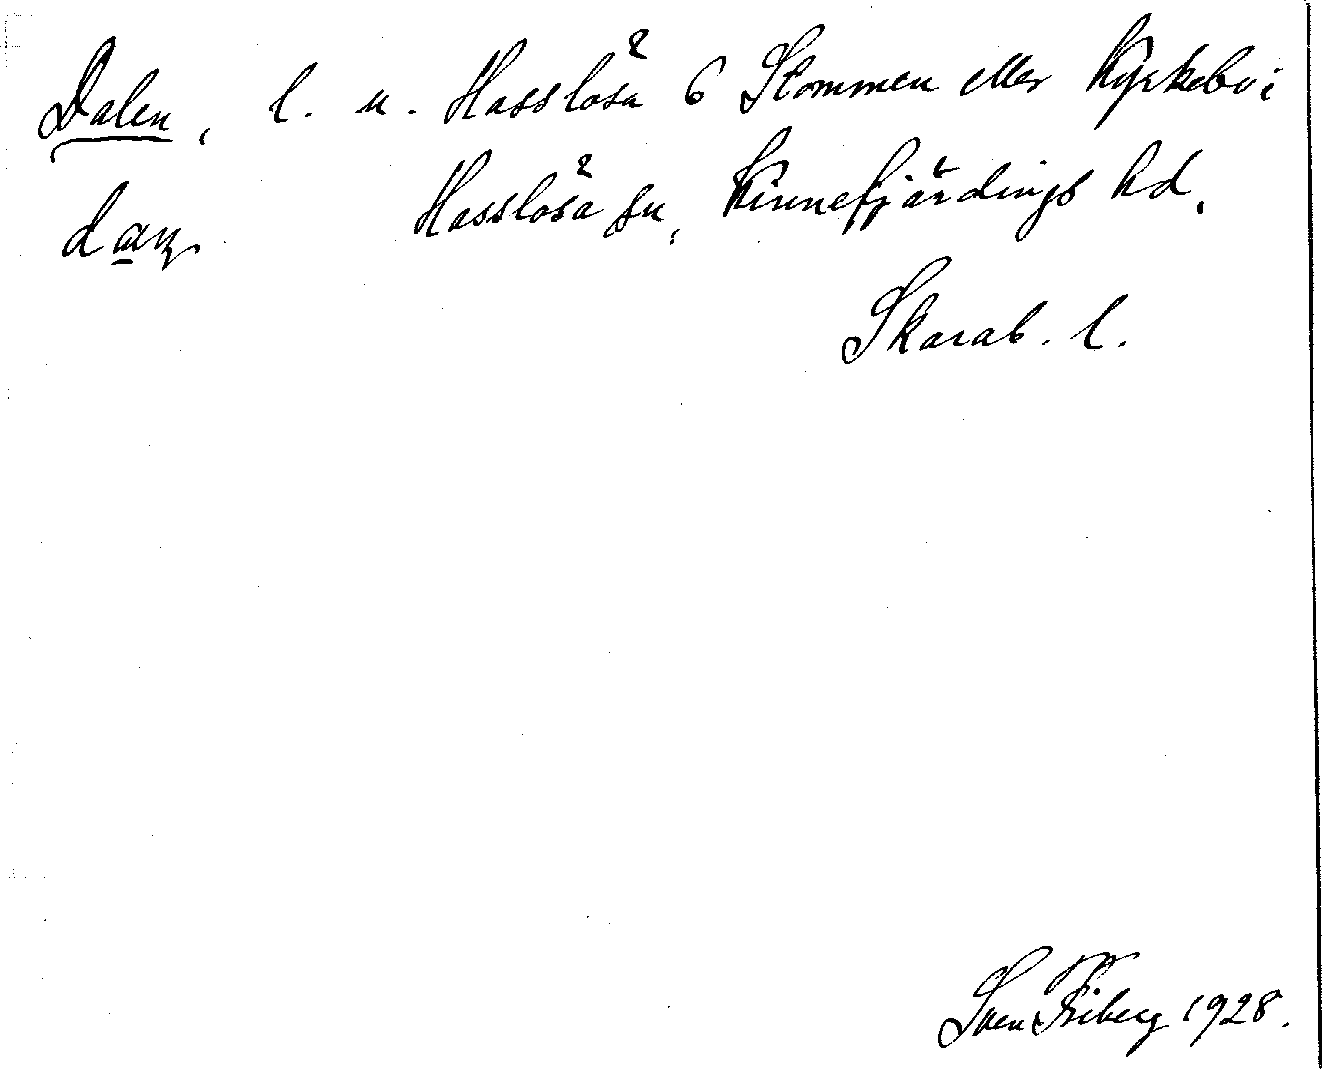 Dalen, l. u. Hasslösa 6 Stommen eller Kyrkebo i
daɳ Hasslösa sn, Kinnefjärdings hd.
Skarab. l.
Sven Friberg 1928.